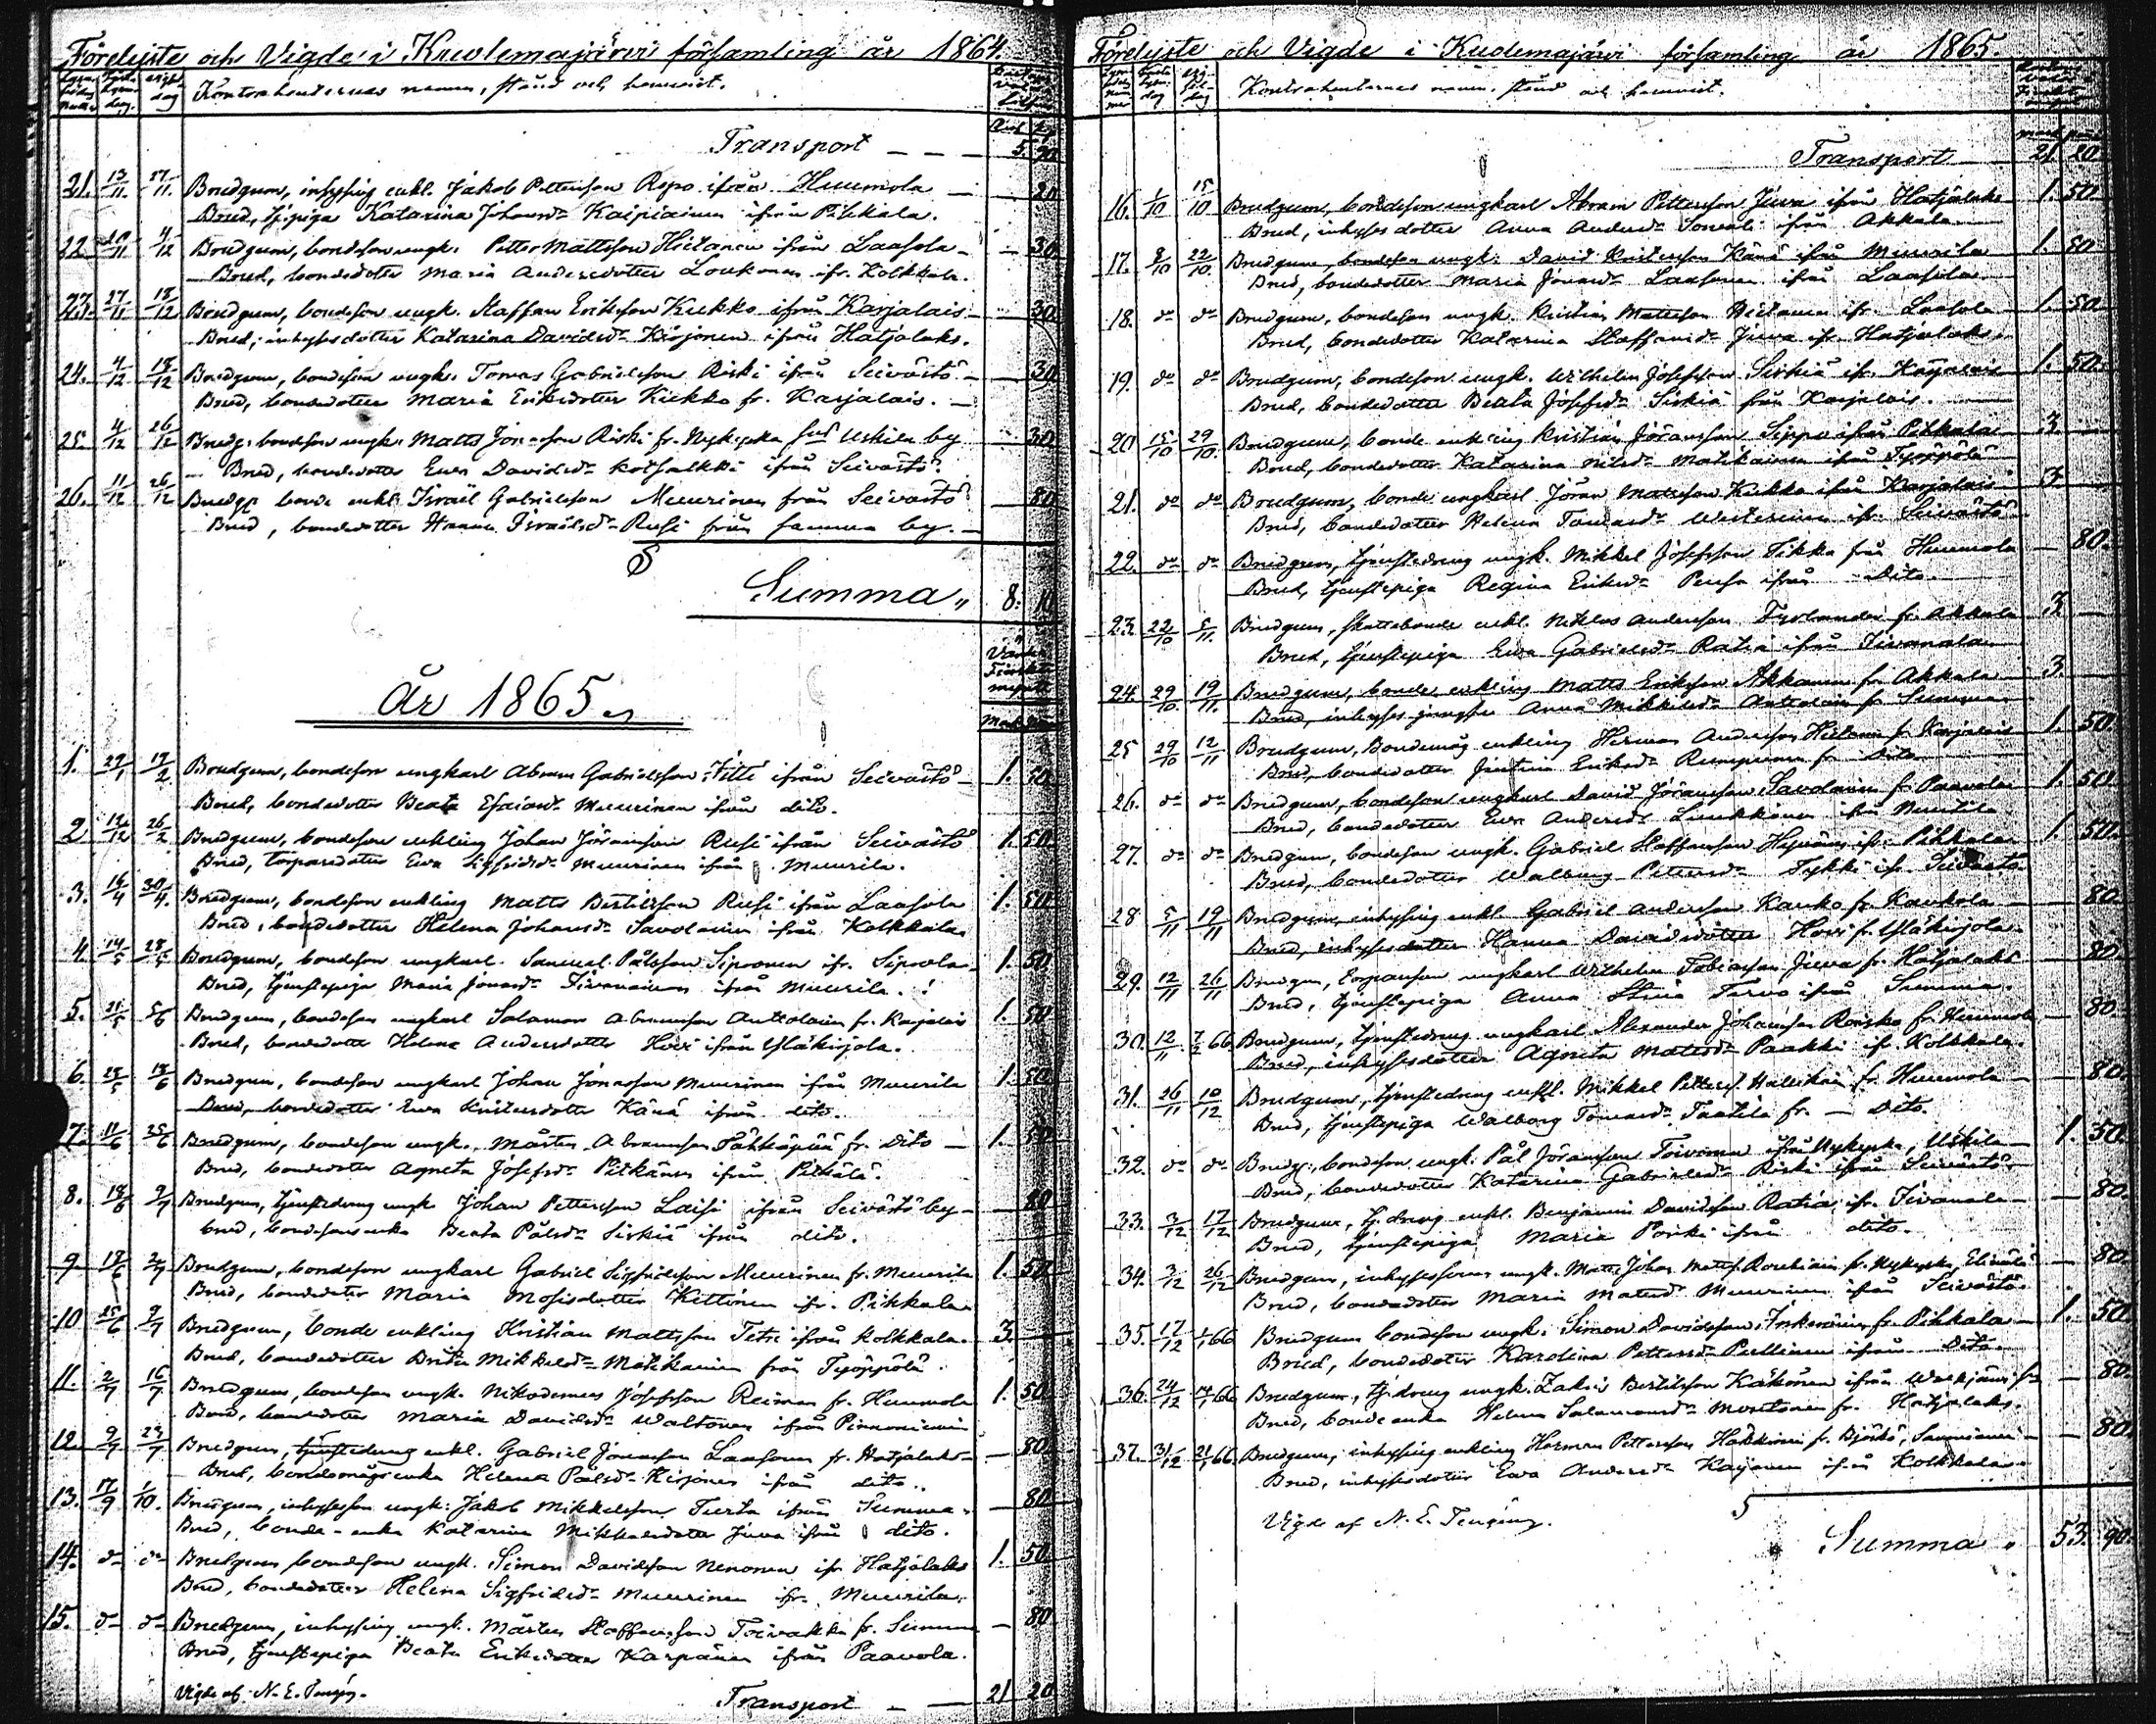 Förelyste och Vigde i Kuolemajärvi församling år 1864.
Kontrahenternas namn, stånd och hemvist.
Transport — — — 5. 90
21. 13/11. 27/11. Brudgum, inhysing enkl. Jakob Pettersson Repo ifrån Huumola — 20
Brud, tjpiga Katarina Johansdr Kaipiainen ifrån Pihkala.
22 20/11 4/12 Brudgum, bondeson ungk. Petter Mattsson Hietanen ifrån Laasola — 30
Brud, bondedotter Maria Andersdotter Loukonen ifr. Kolkkala.
23. 27/11 18/12 Brudgum, bondeson ungk. Staffan Eriksson Kukko ifrån Karjalais — 30
Brud, inhysesdotter Katarina Davidsdr Kirjonen ifrån Hatjalaks.
24. 4/12 18/12 Brudgum, bondeson ungk. Tomas Gabrielsson Riski ifrån Seivästö — 30
Brud, bondedotter Maria Eriksdotter Kukko fr. Karjalais. —
25. 4/12 26/12 Brudg. bondeson ungk. Matts Jönasson Riski fr. Nykyrka Uskila by 30
Brud, bondedotter Ewa Davidsdr Kotsalkki ifrån Seivästö.
26. 11/12 26/12 Brudg. bonde enkl. Israël Gabrielsson Muurinen från Seivästö 80
Brud, bondedotter Hanna Israëlsdr Rusi från samma by. —
Summa „ 8. 10
År 1865.
1. 29/1 19/2 Brudgum, bondeson ungkarl Abram Gabrielsson Titti ifrån Seivästö — 1. 50
Brud, bondedotter Beata Esaiasdr Muurinen ifrån dito.
2 12/12 26/2 Brudgum, bondeson enkling Johan Jöransson Rusi ifrån Seivästö 1. 50.
Brud, torparedotter Ewa Sigfridsdr Muurinen ifrån Muurila.
3. 16/4 30/4. Brudgum, bondeson enkling Matts Bertilsson Rusi ifrån Laasola 1. 50.
Brud, bondedotter Helena Johansdr Savolainen ifrån Kolkkala
4. 14/5 28/5 Brudgum, bondeson ungkarl. Samuel Pålsson Sipronen ifr. Siprola 1. 50
Brud, tjenstepiga Maria Jönasdr Tivanainen ifrån Muurila.
5. 21/5 5/6 Brudgum, bondeson ungkarl Salamon Abramsson Anttolain fr. Karjalais 1. 50
Brud, bondedotter Helena Andersdotter Hovi ifrån Yläkirjola.
6. 28/5 18/6 Brudgum, bondeson ungkarl Johan Jönasson Muurinen ifrån Muurila 1. 50
Brud, bondedotter Ewa Kristersdotter Känä ifrån dito.
7. 11/6 25/6 Brudgum, bondeson ungk. Mårten Abramsson Pähkäpää fr. Dito — 1. 50
Brud, bondedotter Agneta Josefsdr Pitkänen ifrån Pitkälä.
8. 18/6 9/7 Brudgum, tjenstedreng ungk Johan Pettersson Laisi ifrån Seivästö by — 80
brud, bondesons enka Beata Pålsdr Sirkiä ifrån dito.
9 18/6 2/7 Brudgum, bondeson ungkarl Gabriel Sigfridsson Muurinen fr. Muurila 1. 50
Brud, bondedotter Maria Mosisdotter Kettönen ifr. Pihkala
10 25/6 9/7 Brudgum, bonde enkling Kristian Mattsson Tetri ifrån Kolkkala. 3. —
Brud, bondedotter Brita Mikkelsdr Matikainen från Työppölä.
11. 2/7 16/7 Brudgum, bondeson ungk. Nikodemus Josefsson Reiman fr. Huumola 1. 50
Brud, bondedotter Maria Davidsdr Waltonen ifrån Pinnoniemi
12. 9/7 23/7 Brudgum, tjenstedreng enkl. Gabriel Jönasson Laasonen fr. Hatjalaks — 80.
Brud, bondemågs enka Helena Pålsdr Kirjonen ifrån dito.
13. 17/9 1/10. Brudgum, inhysesson ungk. Jakob Mikkelsson Turta ifrån Summa — 80.
Brud, bonde-enka Katarina Mikkelsdotter Juva ifrån dito.
14. do do Brudgum bondeson ungk. Simon Davidsson Nenonen ifr Hatjalaks 1. 50
Brud, bondedotter Helena Sigfridsdr Muurinen ifr. Muurila.
15. do do Brudgum, inhysing ungk. Mårten Staffansson Toivakka fr. Summa — 80
Brud, tjenstepiga Beata Eriksdotter Karpänen ifrån Paavola.
Vigde af N. E.
Transport — 21 20
Förelyste och Vigde i Kuolemajärvi församling år 1865.
Kontrahenternas namn, stånd och hemvist.
Transport 21 20
16. 1/10 15/10 Brudgum, bondeson ungkarl Abram Pettersson Juva ifrån Hatjalaks 1. 50
Brud, inhyses dotter Anna Andersdr ifrån Akkala
17. 8/10 22/10 Brudgum, bondeson ungk. David Kristersson Känä ifrån Muurila 1. 50
Brud, bondedotter Maria Jönasdr Laasonen ifrån Laasola
18. do do Brudgum, bondeson ungk. Kristian Mattsson Hietanen ifr. Laasola 1. 50
Brud, bondedotter Katarina Staffansdr Juva ifr. Hatjalaks.
19. do do Brudgum, bondeson ungk. Wilhelm Josefsson Sirkiä ifr. Karjalais 1. 50.
Brud, bondedotter Beata Josefsdr Sirkiä från Karjalais.
20 15/10 29/10. Brudgum, bonde enkling Kristian Jöransson Sippu ifrån Pihkala 3.
Brud, bondedotter Katarina Nilsdr Matikainen ifrån Työppölä
21. do do Brudgum, bonde ungkarl Jöran Mattsson Kukko ifrån Karjalais 3
Brud, bondedotter Helena Tomasdr Westerinen ifr. Seivästö
22. do do Brudgum, tjenstedreng ungk. Mikkel Josefsson Tikka från Huumola — 80.
Brud, tjenstepiga Regina Eriksdr Pensa ifrån Dito.
23. 22/10 5/11. Brudgum, skattebonde enkl. Niklas Andersson Fyrlander fr. Akkala 3.
Brud, tjenstepiga Ewa Gabrielsdr Ratia ifrån Tivanala
24. 29/10. 19/11. Brudgum, bonde enkling Matts Eriksson Akkanen fr. Akkala 3.
Brud, inhyses Anna Mikkelsdr Anttolain fr. Summa
25 29/10 12/11 Brudgum, Bondemåg enkling Herman Andersson Hietanen fr. Karjalais 1. 50.
Brud, bondedotter Justina Eriksdr Rumpunen fr. Dito
26. do do Brudgum, bondeson ungkarl David Jöransson Savolainen fr. Paavola 1. 50.
Brud, bondedotter Ewa Andersdr Liukkonen ifrån Muurila
27. do do Brudgum, bondeson ungk. Gabriel Staffansson ifr. Pihkala 1. 50.
Brud, bondedotter Walborg Pettersdr Tykki ifr. Seivästö.
28 5/11 19/11 Brudgum, inhysing enkl. Gabriel Andersson Kauko fr. Kaukola — 80.
Brud, inhysesdotter Hanna Davidsdotter Hovi fr. Yläkirjola.
29. 12/11 26/11 Brudgum, torpareson ungkarl Wilhelm Fabiansson Juva fr. Hatjalaks — 80.
Brud, tjenstepiga Anna Stina Tervo ifrån Summa.
30. 12/11. 7/2 66. Brudgum, tjenstedreng ungkarl Alexander Johansson Ronsko fr. Huumola 80.
Brud, inhysesdotter Agneta Mattsdr Paakki ifr. Kolkkala.
31. 26/11 10/12 Brudgum, tjenstedreng enkl. Mikkel Petterss. Halikai fr. Huumola — 80.
Brud, tjenstepiga Walborg Tomasdr Taatila fr. — Dito.
32. do do Brudg., bondeson ungk. Pål Jöransson Toivonen ifrån Nykyrka, Uskila 1. 50.
Brud, bondedotter Katarina Gabrielsdr Riski ifrån Seivästö.
33. 3/12 17/12 Brudgum, tj.dreng enkl. Benjamin Davidsson Ratia ifr. Tivanala — 80.
Brud, tjenstepiga Maria Porki ifrån dito.
34. 3/12 26/12 Brudgum, inhysesson ungk. Matts Johan Mattss. fr. Nykyrka, — 80.
Brud, bondedotter Maria Mattsdr Muurinen ifrån Seivästö.
35. 17/12 1/1 66 Brudgum bondeson ungk. Simon Davidsson Inkeroinen fr. Pihkala 1. 50
Brud, bondedotter Karolina Pettersdr Pullinen ifrån Dito.
36. 24/12 14/1 66 Brudgum, tj.dreng ungk. Zakris Bertilsson Kakonen ifrån — 80.
Brud, bonde enka Helena Salamonsdr Montonen fr. Hatjalaks.
37. 31/12 21/1 66. Brudgum, inhysing enkling Herman Pettersson Hakkinen fr. Björkö, — 80.
Brud, inhysesdotter Ewa Andersdr Karjanen ifrån Kolkkala
Vigde af N. E.
Summa „ 53. 90.